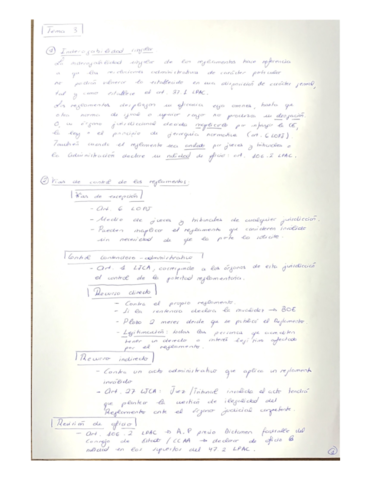 Tema 5
① Inderogabilidad singular
La inderogabilidad singular de los reglamentos hace referencia
a que las resoluciones administrativas de carácter particular
no podrán vulnerar lo establecido en una disposición de carácter general,
tal y como establece el art. 37.1 LPAC.
Los reglamentos despliegan su eficacia erga omnes, hasta que
otra norma de igual o superior rango
o un órgano jurisdiccional
la ley o el principio de jerarquía normativa (art. 6 LOPJ)
También cuando el reglamento sea anulado por jueces y tribunales o
la administración declare su nulidad de oficio: art. 106.2 LPAC.
② Vías de control de los reglamentos
Vía de excepción
- Art. 6 LOPJ
- jueces y tribunales de cualquier jurisdicción.
- Pueden inaplicar el reglamento que consideren inválido
sin necesidad de que la parte lo solicite
Control contencioso-administrativo
- Art. 1 LJCA, corresponde a los órganos de esta jurisdicción
el control de la potestad reglamentaria.
Recurso directo
- Contra el propio reglamento.
- Si la sentencia declara la invalidez → BOE
- Plazo 2 meses desde que se publicó el Reglamento
- Legitimación: todas las personas que
un derecho o interés legítimo afectado
por el reglamento.
Recurso indirecto
- Contra un acto administrativo que aplica un reglamento
inválido
- Art. 27 LJCA: Juez/Tribunal el acto tendrá
que plantear la cuestión de ilegalidad del
Reglamento ante el órgano judicial competente
Revisión de oficio
- Art. 106.2 LPAC → A.P previo dictamen favorable del
Consejo de Estado / CCAA → declarar de oficio la
nulidad en los supuestos del 47.2 LPAC.